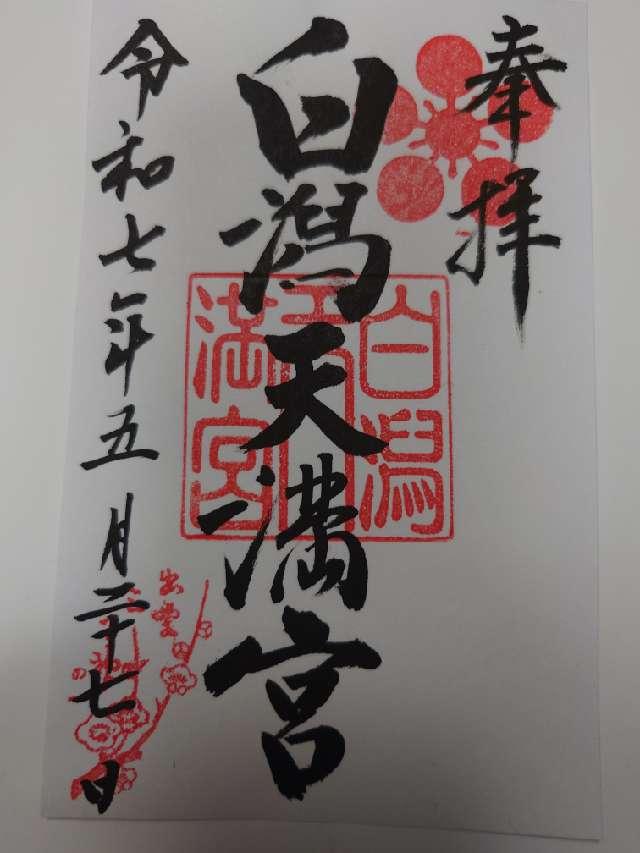 奉拝
白潟天満宮
白潟
天
満宮
令和七年五月二十七日
出雲